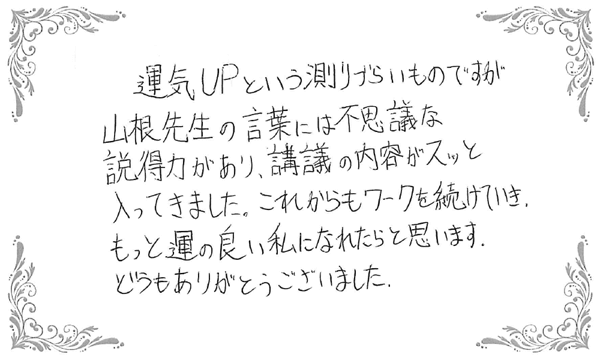 運気UPという測りづらいものですが
山根先生の言葉には不思議な
説得力があり、講議の内容がスッと
入ってきました。これからもワークを続けていき、
もっと運の良い私になれたらと思います。
どうもありがとうございました。